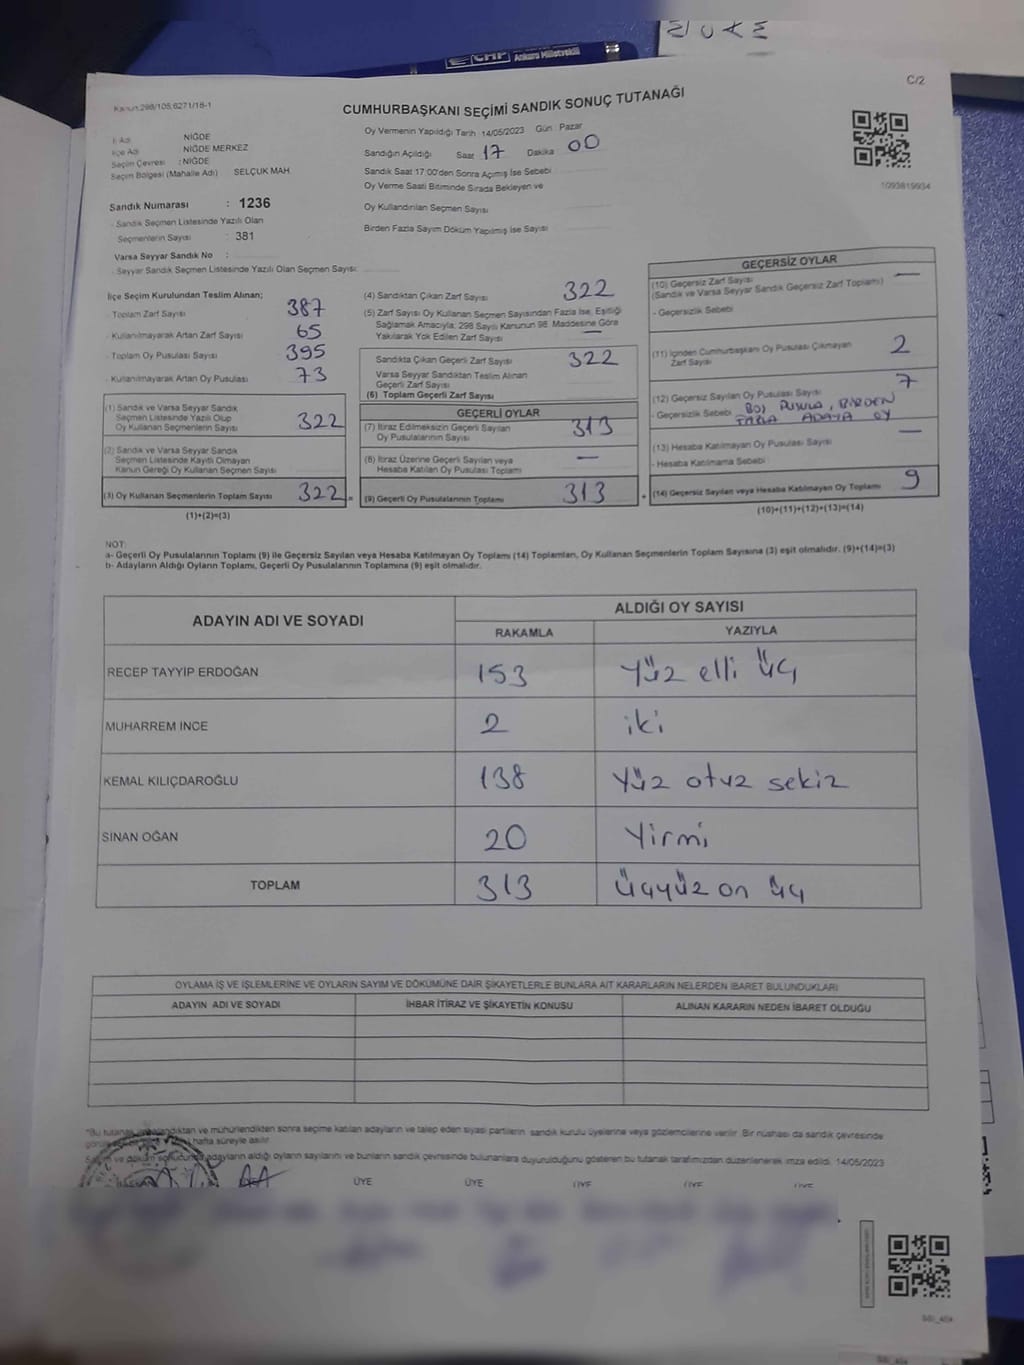 CHP Ankara Milletvekili
C/2
Kanun:298/105;6271/18-1
CUMHURBAŞKANI SEÇİMİ SANDIK SONUÇ TUTANAĞI
İl Adı NİĞDE
İlçe Adı NİĞDE MERKEZ
Seçim Çevresi : NİĞDE
Seçim Bölgesi (Mahalle Adı) SELÇUK MAH.
Oy Vermenin Yapıldığı Tarih 14/05/2023 Gün Pazar
Sandığın Açıldığı Saat 17 Dakika 00
Sandık Saat 17:00'den Sonra Açımış İse Sebebi
Oy Verme Saati Bitiminde Sırada Bekleyen ve
Oy Kullandırılan Seçmen Sayısı
Birden Fazla Sayım Döküm Yapılmış İse Sayısı
1093819934
Sandık Numarası : 1236
- Sandık Seçmen Listesinde Yazılı Olan
Seçmenlerin Sayısı : 381
Varsa Seyyar Sandık No :
- Seyyar Sandık Seçmen Listesinde Yazılı Olan Seçmen Sayısı:
İlçe Seçim Kurulundan Teslim Alınan;
- Toplam Zarf Sayısı 387
- Kullanılmayarak Artan Zarf Sayısı 65
- Toplam Oy Pusulası Sayısı 395
- Kullanılmayarak Artan Oy Pusulası 73
(1) Sandık ve Varsa Seyyar Sandık
Seçmen Listesinde Yazılı Olup
Oy Kullanan Seçmenlerin Sayısı 322
(2) Sandık ve Varsa Seyyar Sandık
Seçmen Listesinde Kayıtlı Olmayan
Kanun Gereği Oy Kullanan Seçmen Sayısı
(3) Oy Kullanan Seçmenlerin Toplam Sayısı 322 =
(1)+(2)=(3)
(4) Sandıktan Çıkan Zarf Sayısı 322
(5) Zarf Sayısı Oy Kullanan Seçmen Sayısından Fazla İse, Eşitliği
Sağlamak Amacıyla; 298 Sayılı Kanunun 98. Maddesine Göre
Yakılarak Yok Edilen Zarf Sayısı —
Sandıkta Çıkan Geçerli Zarf Sayısı 322
Varsa Seyyar Sandıktan Teslim Alınan
Geçerli Zarf Sayısı
(6) Toplam Geçerli Zarf Sayısı
GEÇERLİ OYLAR
(7) İtiraz Edilmeksizin Geçerli Sayılan
Oy Pusulalarının Sayısı 313
(8) İtiraz Üzerine Geçerli Sayılan veya
Hesaba Katılan Oy Pusulası Toplamı —
(9) Geçerli Oy Pusulalarının Toplamı 313 +
GEÇERSİZ OYLAR
(10) Geçersiz Zarf Sayısı —
(Sandık ve Varsa Seyyar Sandık Geçersiz Zarf Toplamı)
- Geçersizlik Sebebi
(11) İçinden Cumhurbaşkanı Oy Pusulası Çıkmayan
Zarf Sayısı 2
(12) Geçersiz Sayılan Oy Pusulası Sayısı 7
- Geçersizlik Sebebi BOŞ PUSULA, BİRDEN
FAZLA ADAYA OY
(13) Hesaba Katılmayan Oy Pusulası Sayısı —
- Hesaba Katılmama Sebebi
(14) Geçersiz Sayılan veya Hesaba Katılmayan Oy Toplamı 9
(10)+(11)+(12)+(13)=(14)
NOT:
a- Geçerli Oy Pusulalarının Toplamı (9) ile Geçersiz Sayılan veya Hesaba Katılmayan Oy Toplamı (14) Toplamları, Oy Kullanan Seçmenlerin Toplam Sayısına (3) eşit olmalıdır. (9)+(14)=(3)
b- Adayların Aldığı Oyların Toplamı, Geçerli Oy Pusulalarının Toplamına (9) eşit olmalıdır.
ADAYIN ADI VE SOYADI ALDIĞI OY SAYISI
RAKAMLA YAZIYLA
RECEP TAYYİP ERDOĞAN 153 Yüz elli üç
MUHARREM İNCE 2 iki
KEMAL KILIÇDAROĞLU 138 Yüz otuz sekiz
SİNAN OĞAN 20 Yirmi
TOPLAM 313 Üçyüz on üç
OYLAMA İŞ VE İŞLEMLERİNE VE OYLARIN SAYIM VE DÖKÜMÜNE DAİR ŞİKAYETLERLE BUNLARA AİT KARARLARIN NELERDEN İBARET BULUNDUKLARI
ADAYIN ADI VE SOYADI İHBAR İTİRAZ VE ŞİKAYETİN KONUSU ALINAN KARARIN NEDEN İBARET OLDUĞU
"Bu tutanak imzalandıktan ve mühürlendikten sonra seçime katılan adayların ve talep eden siyasi partilerin sandık kurulu üyelerine veya gözlemcilerine verilir. Bir nüshası da sandık çevresinde
hafta süreyle asılır.
Sayım ve döküm sonucunda adayların aldığı oyların sayılarını ve bunların sandık çevresinde bulunanlara duyurulduğunu gösteren bu tutanak tarafımızdan düzenlenerek imza edildi. 14/05/2023
BAŞKAN ÜYE ÜYE ÜYE ÜYE ÜYE ÜYE